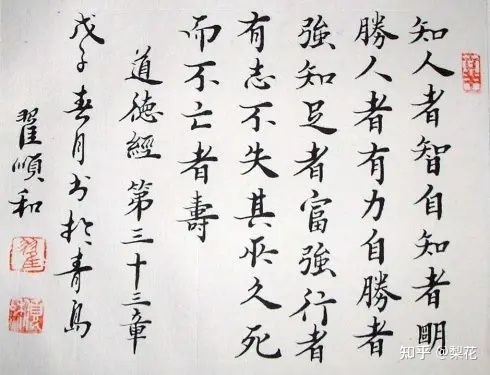 知人者智自知者明
勝人者有力自勝者
強知足者富強行者
有志不失其所久死
而不亡者壽
道德經第三十三章
戊子春月书於青島
翟順和
知乎 @梨花